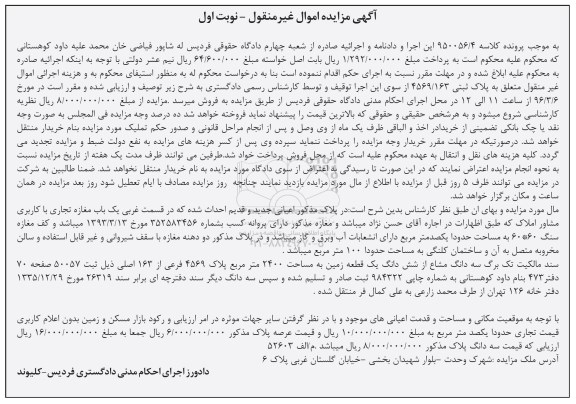 آگهی مزایده اموال غیرمنقول - نوبت اول
به موجب پرونده کلاسه ۹۵۰۰۵۶/۴ این اجرا و دادنامه و اجرائیه صادره از شعبه چهارم دادگاه حقوقی فردیس له شاپور فیاضی خان محمد علیه داود کوهستانی
که محکوم علیه محکوم است به پرداخت مبلغ ۱/۲۹۲/۰۰۰/۰۰۰ ریال بابت اصل خواسته مبلغ ۶۴/۶۰۰/۰۰۰ ریال نیم عشر دولتی با توجه به اینکه اجرائیه صادره
به محکوم علیه ابلاغ شده و در مهلت مقرر نسبت به اجرای حکم اقدام ننموده است بنا به درخواست محکوم له به منظور استیفای محکوم به و هزینه اجرائی اموال
غیر منقول متعلق به پلاک ثبتی ۴۵۶۹/۱۶۳ از سوی این اجرا توقیف و توسط کارشناس رسمی دادگستری به شرح زیر توصیف و ارزیابی شده و مقرر است در مورخ
۹۶/۳/۶ از ساعت ۱۱ الی ۱۲ در محل اجرای احکام مدنی دادگاه حقوقی فردیس از طریق مزایده به فروش میرسد .مزایده از مبلغ ۸/۰۰۰/۰۰۰/۰۰۰ ریال نظریه
کارشناسی شروع میشود و به هرشخص حقیقی و حقوقی که بالاترین قیمت را پیشنهاد نماید فروخته خواهد شد ده درصد وجه مزایده فی المجلس به صورت وجه
نقد یا چک بانکی تضمینی از خریداراخذ و الباقی ظرف یک ماه از وی وصل و پس از انجام مراحل قانونی و صدور حکم تملیک مورد مزایده بنام خریدار منتقل
خواهد شد. درصورتیکه در مهلت مقرر خریدار وجه مزایده را پرداخت ننماید سپرده وی پس از کسر هزینه های مزایده به نفع دولت ضبط و مزایده تجدید می
گردد. کلیه هزینه های نقل و انتقال به عهده محکوم علیه است که از محل فروش پرداخت خواد شد.طرفین می توانند ظرف مدت یک هفته از تاریخ مزایده نسبت
به نحوه انجام مزایده اعتراض نمایند که در این صورت تا رسیدگی به اعتراض از سوی دادگاه مورد مزایده به نام خریدار منتقل نخواهد شد. ضمنا طالبین به شرکت
در مزایده می توانند ظرف ۵ روز قبل از مزایده با اطلاع از مال مورد مزایده بازدید نمایند چنانچه روز مزایده مصادف با ایام تعطیل شود روز بعد مزایده در همان
ساعت و مکان برگزار خواهد شد.
مال مورد مزایده و بهای ان طبق نظر کارشناس بدین شرح است:در پلاک مذکور اعیانی جدید و قدیم احداث شده که در قسمت غربی یک باب مغازه تجاری با کاربری
مشاور املاک که طبق اظهارات در اجاره آقای حسن نژاد میباشد و مغازه مذکور دارای پروانه کسب بشماره ۳۵۲۵۸۳۴۵۶ مورخ ۱۳۹۳/۳/۱۳ میباشد و کف مغازه
سنگ ۶۰*۶۰ به مساحت حدودا یکصدمتر مربع دارای انشعابات آب وبرق و گاز میباشد و در پلاک مذکور دو دهنه مغازه با سقف شیروانی و غیر قابل استفاده و سالن
مخروبه متصل به آن و ساختمان کلنگی به مساحت حدودا ۱۰۰ متر مربع میباشد .
سند مالکیت تک برگ سه دانگ مشاع از شش دانگ یک قطعه زمین به مساحت ۲۴۰۰ متر مربع پلاک ۴۵۶۹ فرعی از ۱۶۳ اصلی ذیل ثبت ۵۰۰۵۷ صفحه ۷۰
دفتر۴۷۳ بنام داود کوهستانی به شماره چاپی ۹۸۴۳۲۲ ثبت صادر و تسلیم شده و سپس سه دانگ دیگر سند دفترچه ای برابر سند ۲۶۳۱۹ مورخ ۱۳۳۵/۱۲/۲۹
دفتر خانه ۱۲۶ تهران از طرف محمد زارعی به علی کمال فر منتقل شده .
با توجه به موقعیت مکانی و مساحت و قدمت اعیانی های موجود و با در نظر گرفتن سایر جهات موثره در امر ارزیابی و رکود بازار مسکن و زمین بدون اعلام کاربری
قیمت تجاری حدودا یکصد متر مربع به مبلغ ۱۰/۰۰۰/۰۰۰/۰۰۰ ریال و قیمت عرصه پلاک مذکور ۶/۰۰۰/۰۰۰/۰۰۰ ریال جمعا به مبلغ ۱۶/۰۰۰/۰۰۰/۰۰۰ ریال
ارزیابی که قیمت سه دانگ پلاک مذکور ۸/۰۰۰/۰۰۰/۰۰۰ ریال میباشد .م/الف ۵۲۶۰۳
آدرس ملک مزایده :شهرک وحدت -بلوار شهیدان بخشی -خیابان گلستان غربی پلاک ۶
دادورز اجرای احکام مدنی دادگستری فردیس-کلیوند